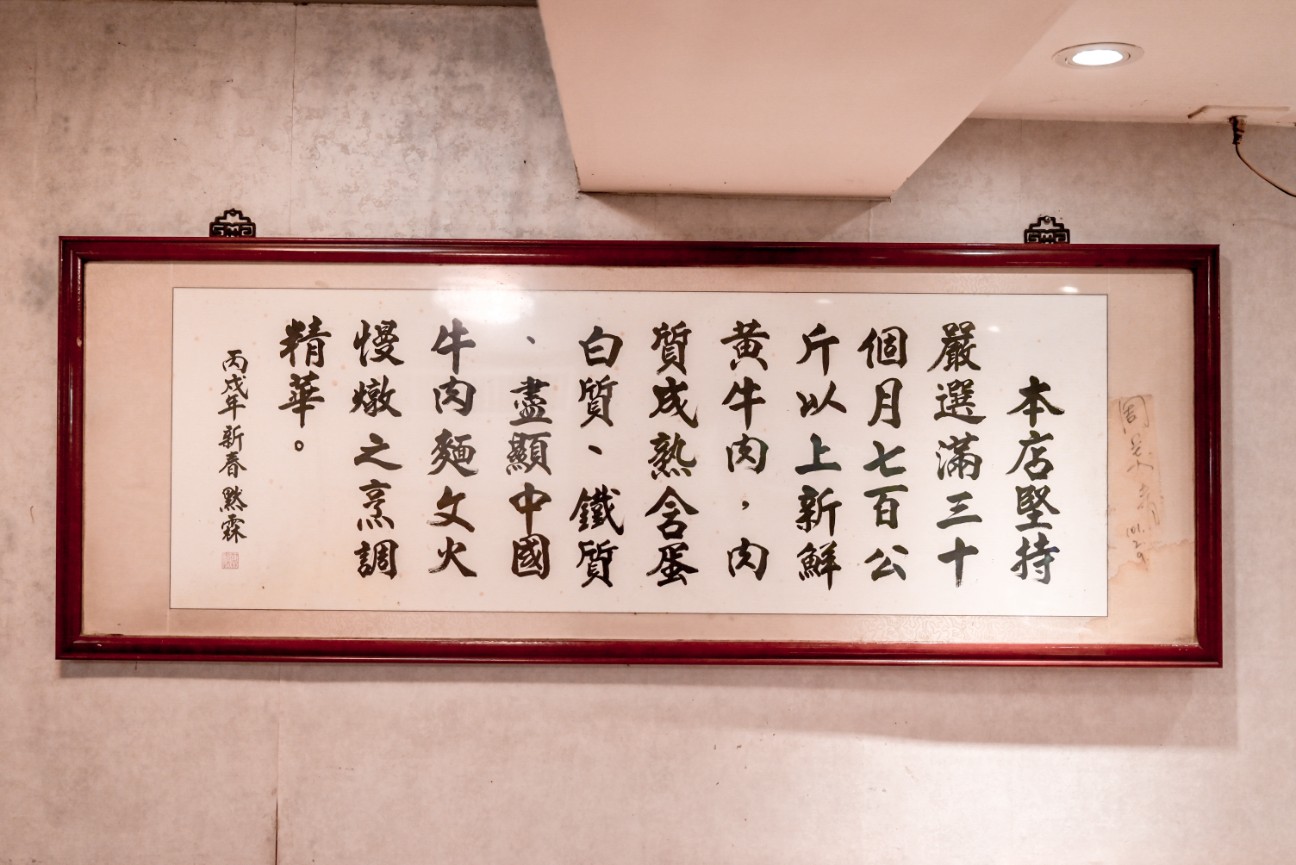 本店堅持
嚴選滿三十
個月七百公
斤以上新鮮
黃牛肉，肉
質成熟含蛋
白質、鐵質
、盡顯中國
牛肉麵文火
慢燉之烹調
精華。
丙戌年新春 默霖
101.2.9